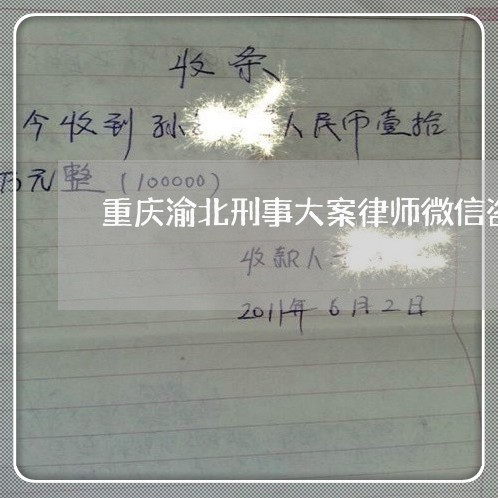 收条
今收到孙 人民币壹拾
万元整(100000)
重庆渝北刑事大案律师微信咨
收款人
2011年6月2日